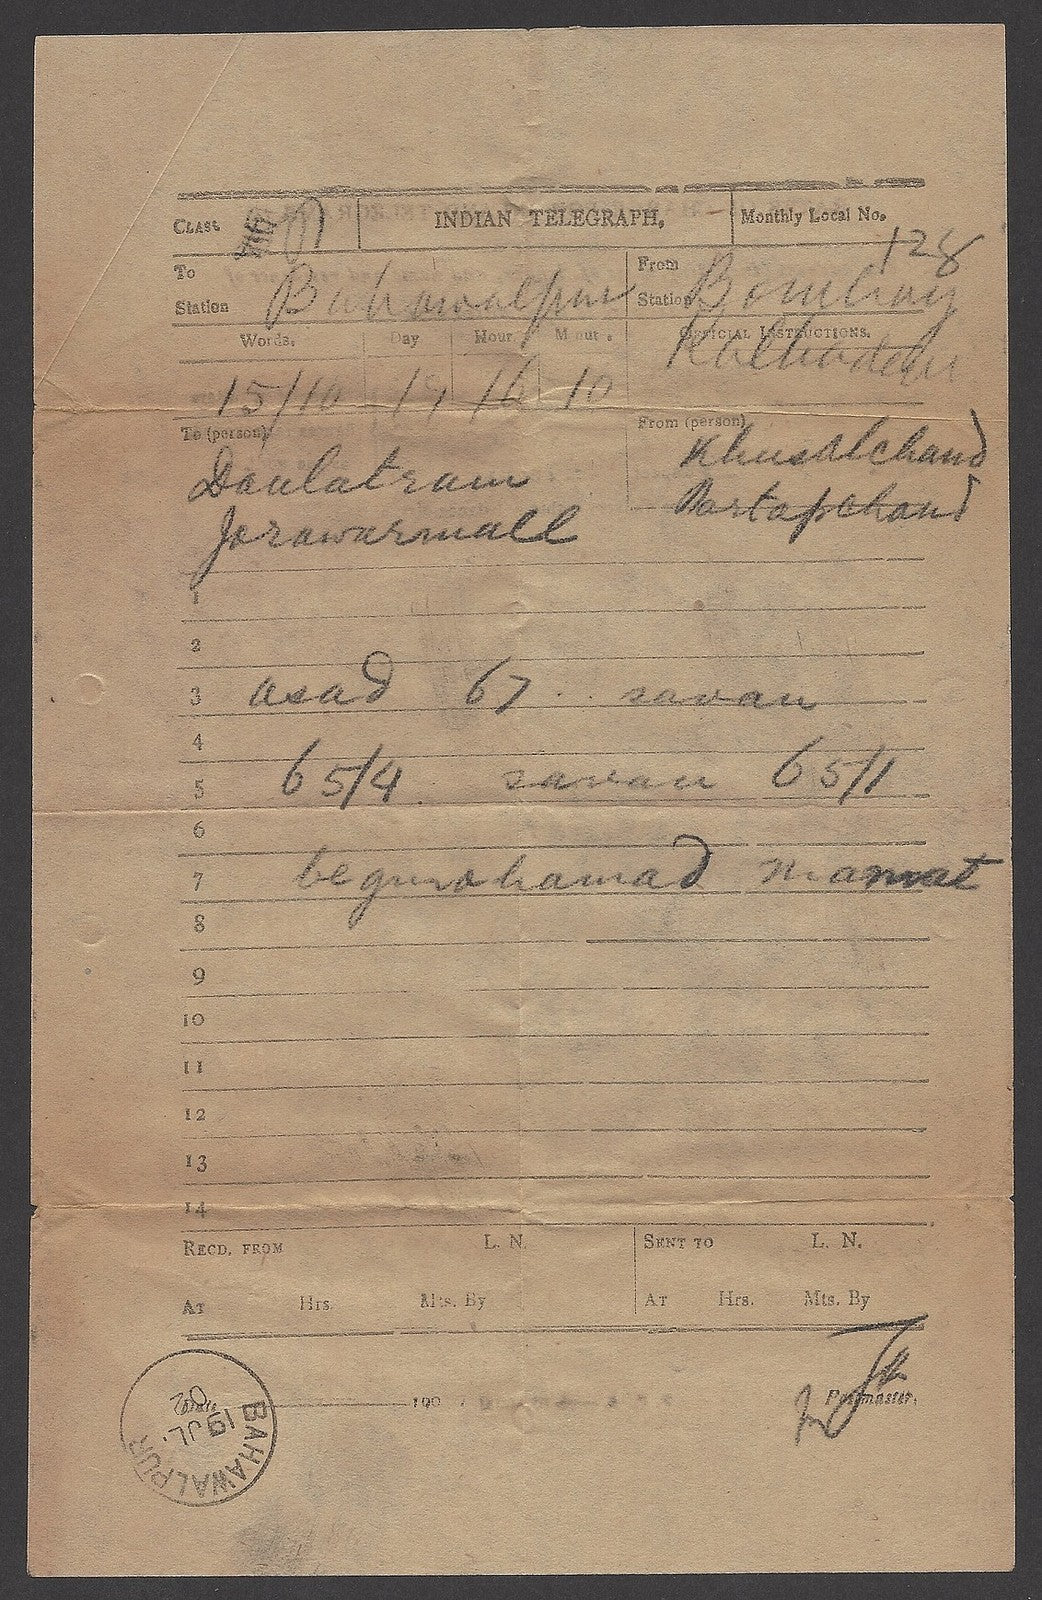 CLASS
INDIAN TELEGRAPH.
Monthly Local No.
128
To
Station Bahawalpur
From
Station Bombay
Kalbadevi
Words.
Day
Hour.
Minut.
OFFICIAL INSTRUCTIONS.
15/10 19 16 10
To (person)
Daulatram
Jorawarmall
From (person)
Khusalchand
Partapchand
1
2
3 asad 67 .. savan
4
5 65/4. savan 65/1
6
7
8
9
10
11
12
13
14
RECD. FROM L. N.
SENT TO L. N.
AT Hrs. Mts. By
AT Hrs. Mts. By
Date 190
Postmaster.
BAHAWALPUR
19 JL.
02